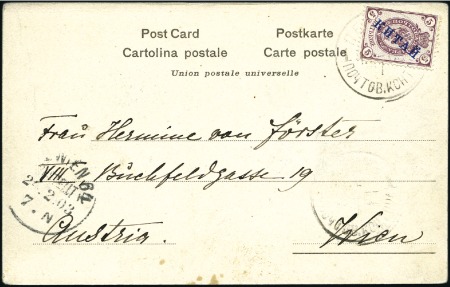 Post Card Postkarte
Cartolina postale Carte postale
Union postale universelle
5 5
КИТАЙ
ПОЧТОВ. КОН
Frau Hermine von Förster
VIII. Buchfeldgasse 19
Austria. Wien
WIEN 64
7. N